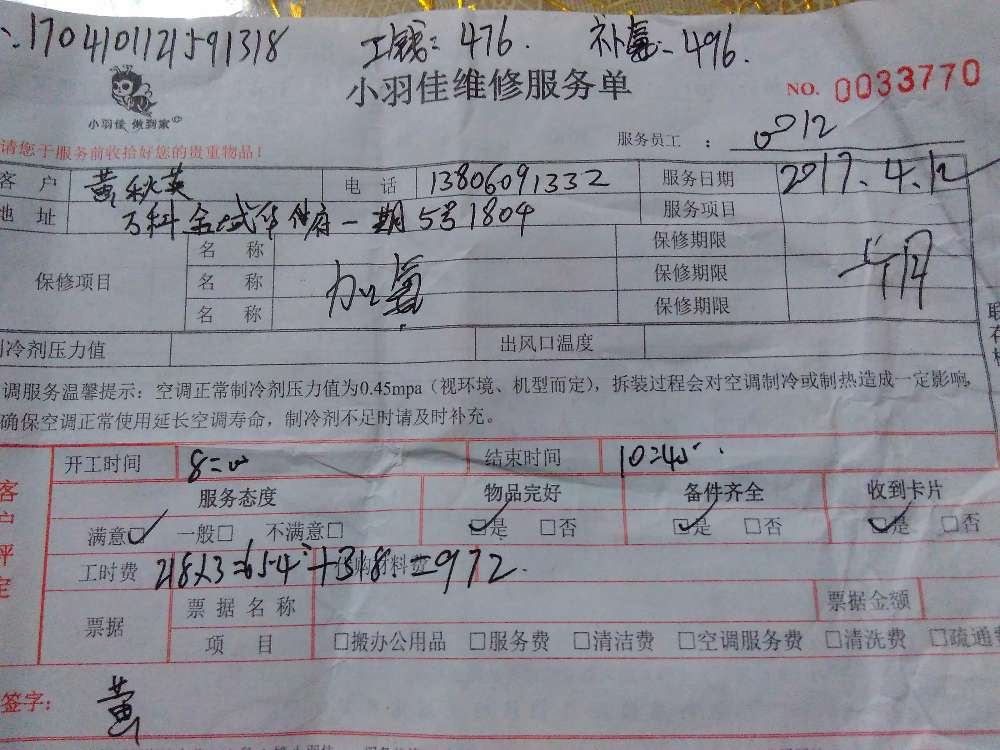 1704101121591318 工钱:476. 补氟-496.
小羽佳维修服务单 NO. 0033770
小羽佳 做到家
服务员工 : 0012
请您于服务前收拾好您的贵重物品!
客 户 黄秋英 电 话 13806091332 服务日期 2017.4.12
地 址 万科金域华府一期5号1804 服务项目
保修项目 名 称 加氟 保修期限
名 称 保修期限
名 称 保修期限
制冷剂压力值 出风口温度
调服务温馨提示: 空调正常制冷剂压力值为0.45mpa(视环境、机型而定),拆装过程会对空调制冷或制热造成一定影响,
确保空调正常使用延长空调寿命,制冷剂不足时请及时补充。
客户评定
开工时间 8:00 结束时间 10:45
服务态度 物品完好 备件齐全 收到卡片
满意☑ 一般□ 不满意□ ☑是 □否 ☑是 □否 ☑是 □否
工时费 218×3=654+318=972. 购材料费
票据 票据名称 票据金额
项 目 □搬办公用品 □服务费 □清洁费 □空调服务费 □清洗费 □疏通
签字: 黄